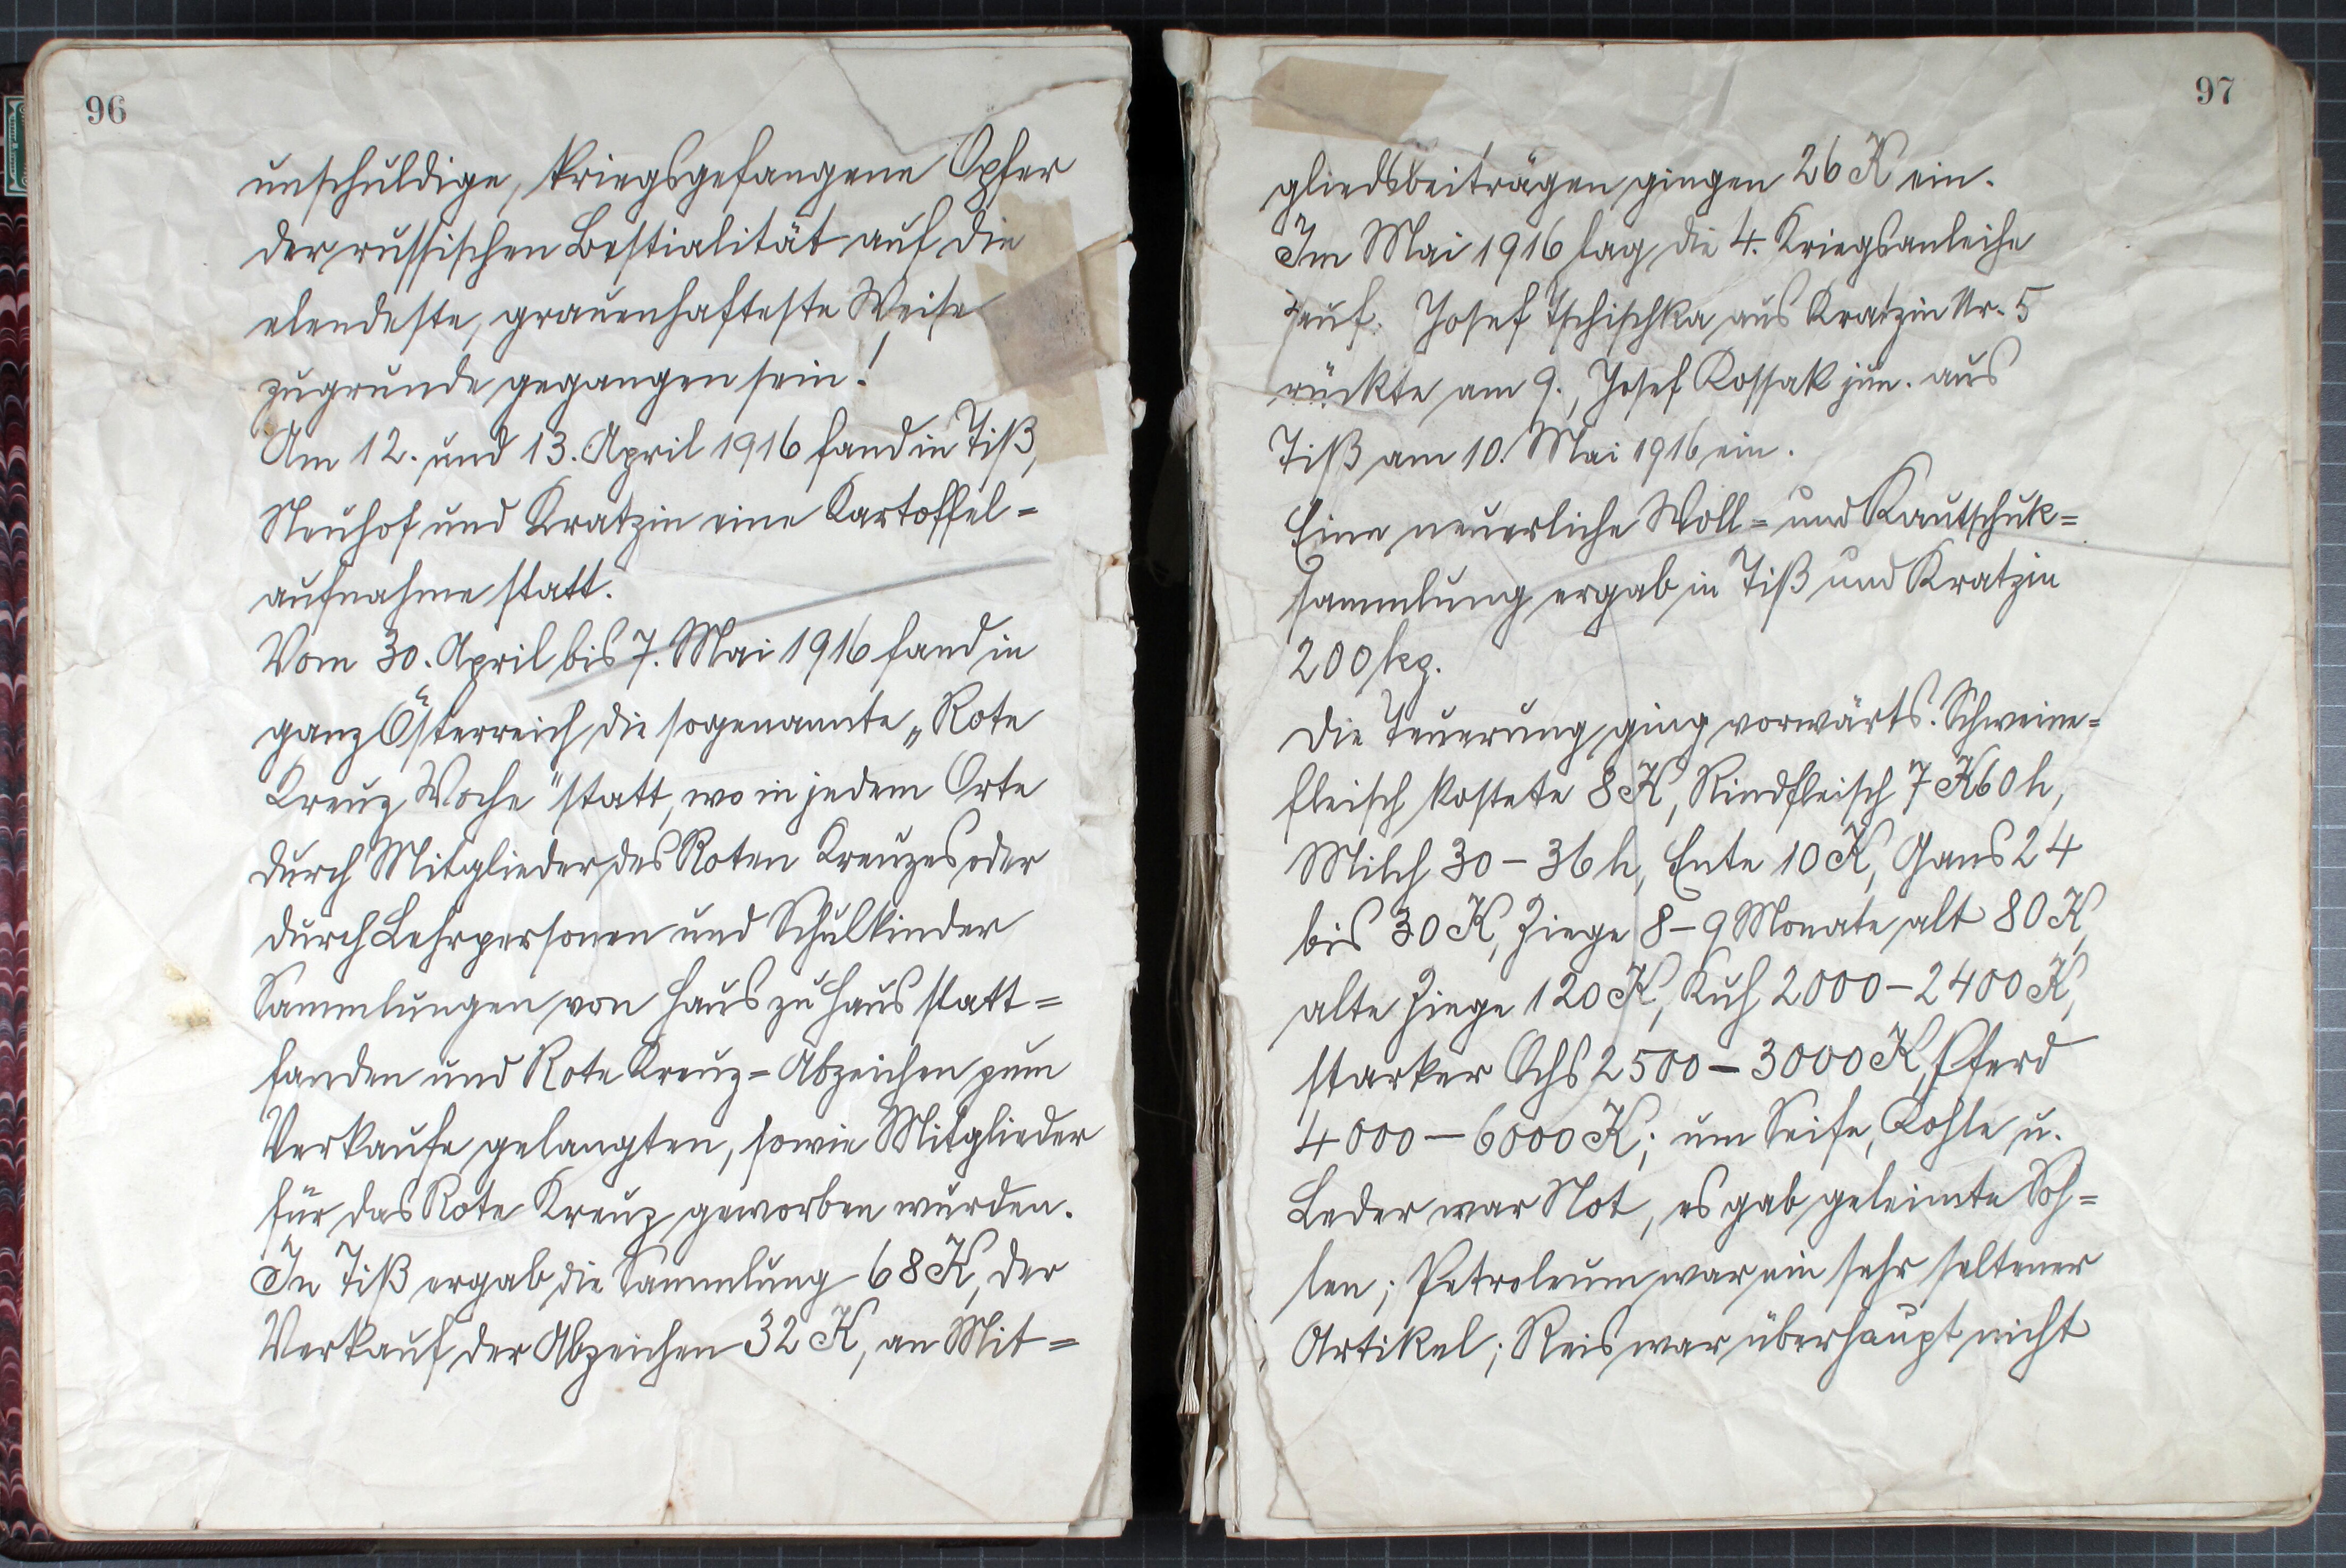 96
unschuldige, kriegsgefangene Opfer
der russischen Bestialität auf die
elendeste, grauenhafteste Weise
zugrunde gegangen sein!
Am 12. und 13. April 1916 fand in Tiß,
Neuhof und Kratzin eine Kartoffel=
aufnahme statt.
Vom 30. April bis 7. Mai 1916 fand in
ganz Österreich die sogenannte „Rote
Kreuz Woche" statt, wo in jedem Orte
durch Mitglieder des Roten Kreuzes oder
durch Lehrpersonen und Schulkinder
Sammlungen von Haus zu Haus statt=
fanden und Rote Kreuz=Abzeichen zum
Verkaufe gelangten, sowie Mitglieder
für das Rote Kreuz geworben wurden.
In Tiß ergab die Sammlung 68 K, der
Verkauf der Abzeichen 32 K, an Mit=
97
gliedsbeiträgen gingen 26 K ein.
Im Mai 1916 lag die 4. Kriegsanleihe
auf. Josef Tschischka aus Kratzin Nr. 5
rückte am 9., Josef Kossak jun. aus
Tiß am 10. Mai 1916 ein.
Eine neuerliche Woll= und Kautschuk=
sammlung ergab in Tiß und Kratzin
200 kg.
Die Teuerung ging vorwärts. Schweine=
fleisch kostete 8 K, Rindfleisch 7 K 60 h,
Milch 30 – 36 h, Ente 10 K, Gans 24
bis 30 K, Ziege 8 – 9 Monate alt 80 K,
alte Ziege 120 K, Kuh 2000 – 2400 K,
starker Ochs 2500 – 3000 K, Pferd
4000 – 6000 K; um Seife, Kohle u.
Leder war Not, es gab geleimte Soh=
len; Petroleum war ein sehr seltener
Artikel; Reis war überhaupt nicht